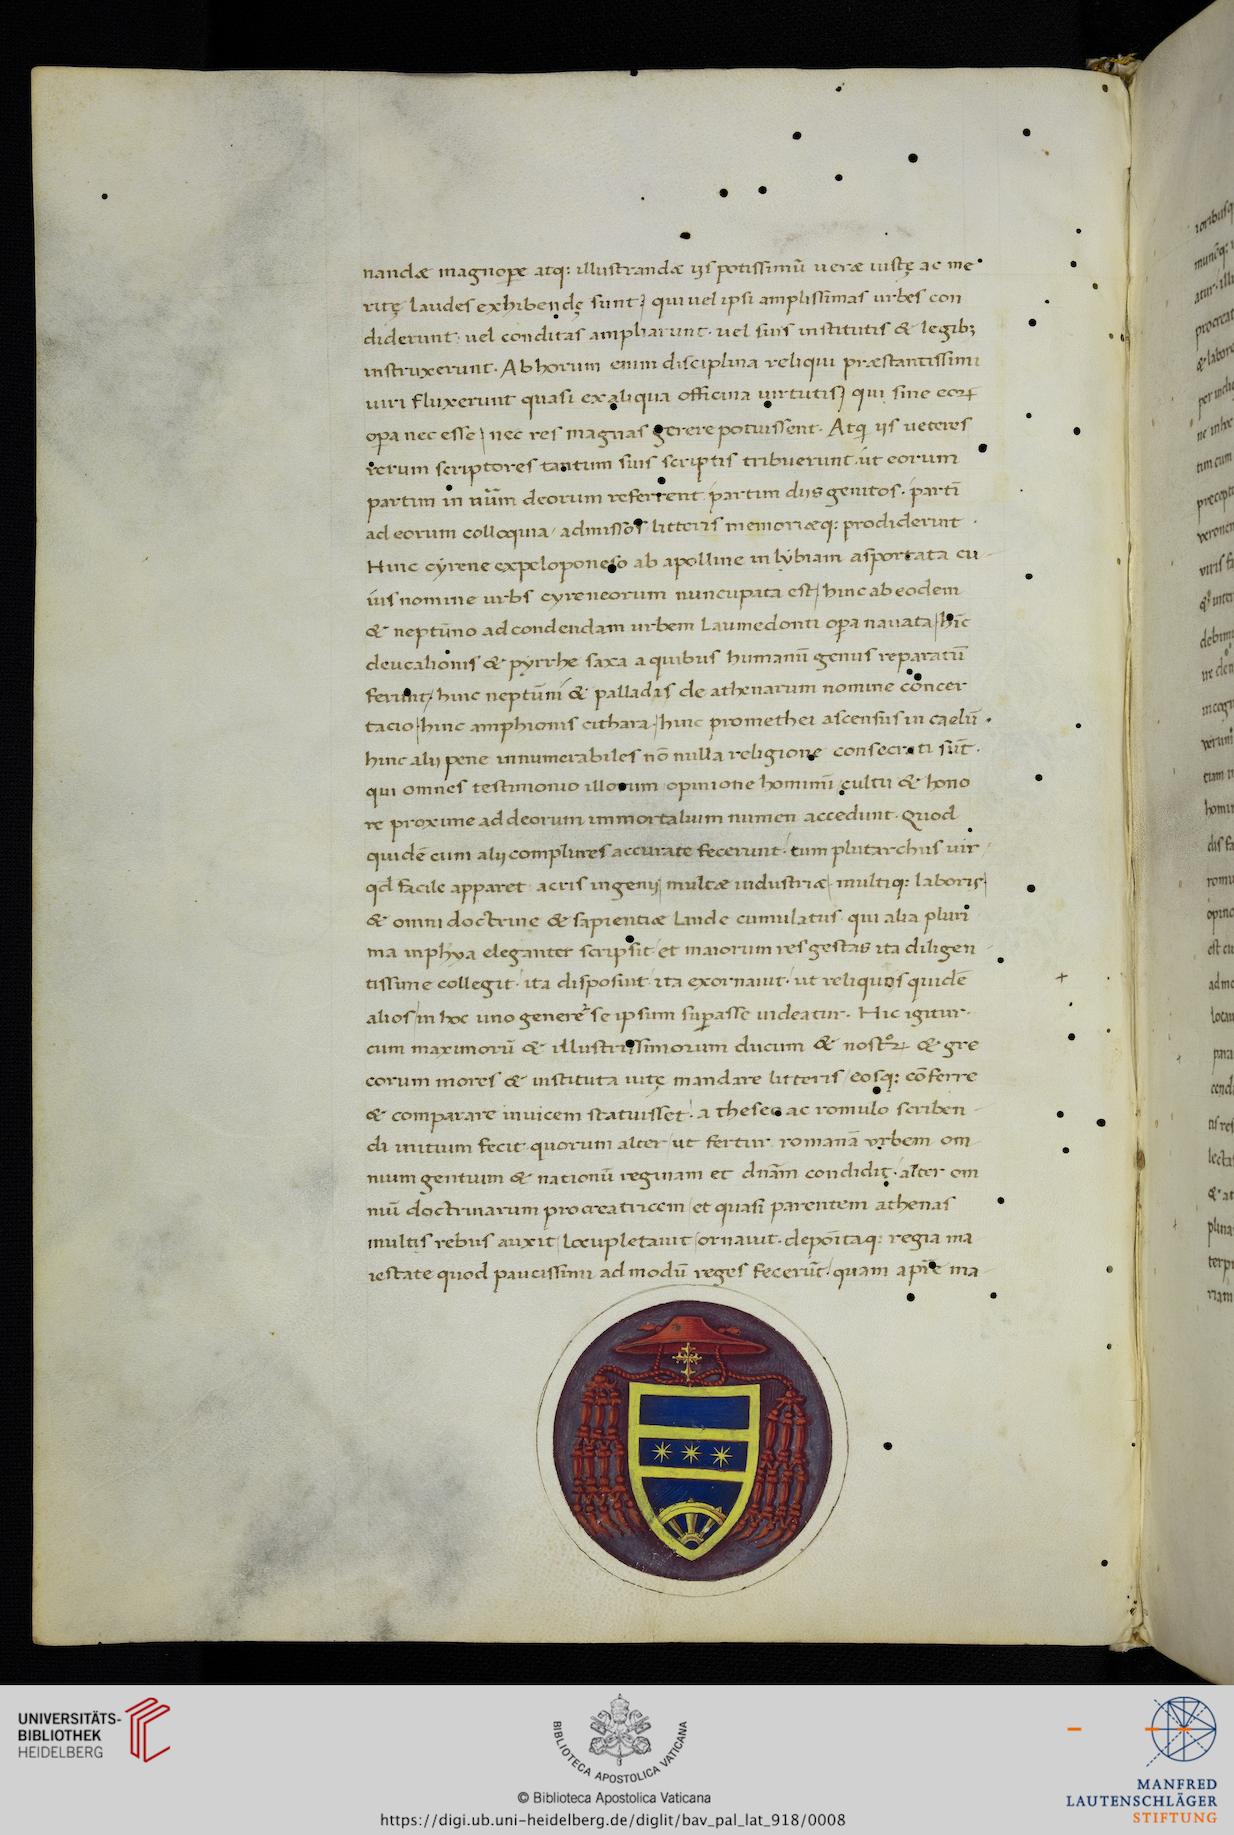 nandæ magnope atq: illustrandæ ijs potissimū ueræ iustę ac me
ritę laudes exhibendę sunt, qui uel ipsi amplissimas urbes con
diderunt· uel conditas ampliarunt· uel suis institutis & legib;
instruxerunt· Ab horum enim disciplina reliqui præstantissimi
uiri fluxerunt quasi ex aliqua officina uirtutis, qui sine eoꝝ
opa nec esse, nec res magnas gerere potuissent· Atq ijs ueteres
rerum scriptores tantum suis scriptis tribuerunt· ut eorum
partim in nūm deorum referrent· partim diis genitos· partī
ad eorum colloquia admissos litteris memoriæq: prodiderunt·
Hinc cyrene ex peloponeso ab apolline in lybiam asportata cu
ius nomine urbs cyreneorum nuncupata est, hinc ab eodem
& neptūno ad condendam urbem Laumedonti opa nauata, hīc
deucalionis & pyrrhe saxa a quibus humanū genus reparatū
ferunt, hinc neptūni & palladis de athenarum nomine concer
tacio, hinc amphionis cithara, hinc promethei ascensus in caelū·
hinc alij pene innumerabiles nō nulla religione consecrati sūt·
qui omnes testimonio illorum opinione hominū cultu & hono
re proxime ad deorum immortalium numen accedunt· Quod
quidē cum alij complures accurate fecerunt· tum plutarchus uir
qd facile apparet acris ingenij, multæ industriæ, multiq: laboris,
& omni doctrine & sapientiæ laude cumulatus· qui alia pluri
ma in phya eleganter scripsit· et maiorum res gestas ita diligen
tissime collegit· ita disposuit· ita exornauit· ut reliquos quidē
alios, in hoc uno genere se ipsum supasse uideatur· Hic igitur
cum maximorū & illustrissimorum ducum & nostroꝝ & gre
corum mores & instituta uitę mandare litteris, eosq: cōferre
& comparare inuicem statuisset· a theseo ac romulo scriben
di initium fecit· quorum alter, ut fertur, romanā urbem om
nium gentium & nationū reginam et dnām condidit· alter om
niū doctrinarum procreatricem, et quasi parentem athenas
multis rebus auxit, locupletauit, ornauit· depoītaq: regia ma
iestate quod paucissimi ad modū reges fecerūt· quam apīre ma
UNIVERSITÄTS-
BIBLIOTHEK
HEIDELBERG
BIBLIOTECA APOSTOLICA VATICANA
© Biblioteca Apostolica Vaticana
https://digi.ub.uni-heidelberg.de/diglit/bav_pal_lat_918/0008
MANFRED
LAUTENSCHLÄGER
STIFTUNG